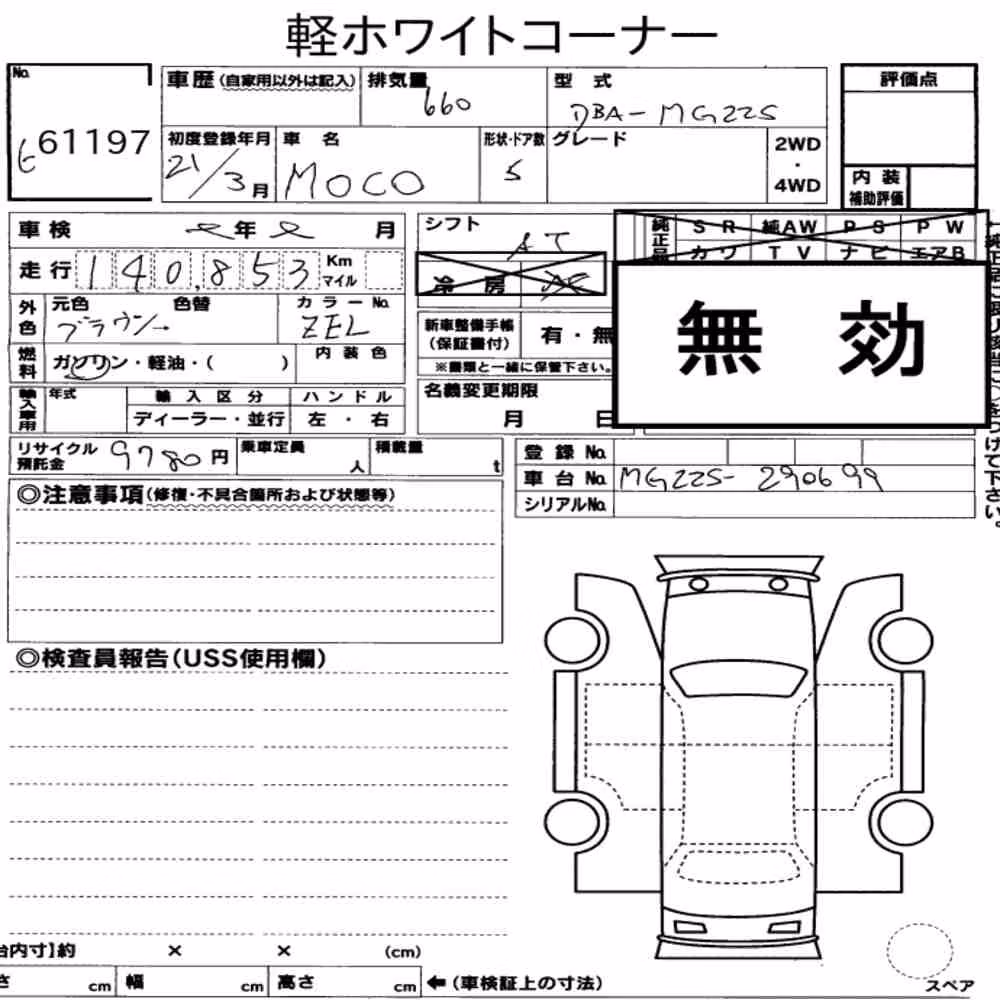 軽ホワイトコーナー
No.
61197
車歴(自家用以外は記入)
排気量
660
型式
DBA-MG22S
評価点
初度登録年月
21/3月
車名
MOCO
形状・ドア数
5
グレード
2WD
・
4WD
内装
補助評価
車検 年 月
走行 140,853 Km
マイル
シフト
AT
冷房
純正品
SR 純AW PS PW
カワ TV ナビ エアB
無効
外色
元色
ブラウン
色替
カラーNo.
ZEL
燃料
ガソリン・軽油・( )
内装色
新車整備手帳
(保証書付)
有・無
※書類と一緒に保管下さい。
輸入車用
年式
輸入区分
ディーラー・並行
ハンドル
左・右
名義変更期限
月 日
リサイクル
預託金
9780円
乗車定員
人
積載量
t
登録No.
車台No. MG22S-290699
シリアルNo.
つけて下さい。
◎注意事項(修復・不具合箇所および状態等)
◎検査員報告(USS使用欄)
台内寸】約 × × (cm)
さ cm 幅 cm 高さ cm ←(車検証上の寸法)
スペア